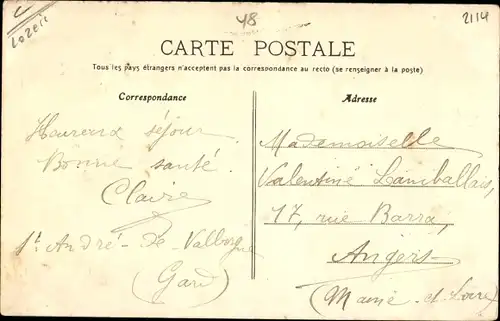 Lozère
48
2114
CARTE POSTALE
Tous les pays étrangers n'acceptent pas la correspondance au recto (se renseigner à la poste)
Correspondance
Heureux séjour
Bonne santé.
Claire
St. André-de-Valborgne
(Gard)
Adresse
Mademoiselle
Valentine Lamballais,
17, rue Barra,
Angers
(Maine-et-Loire)